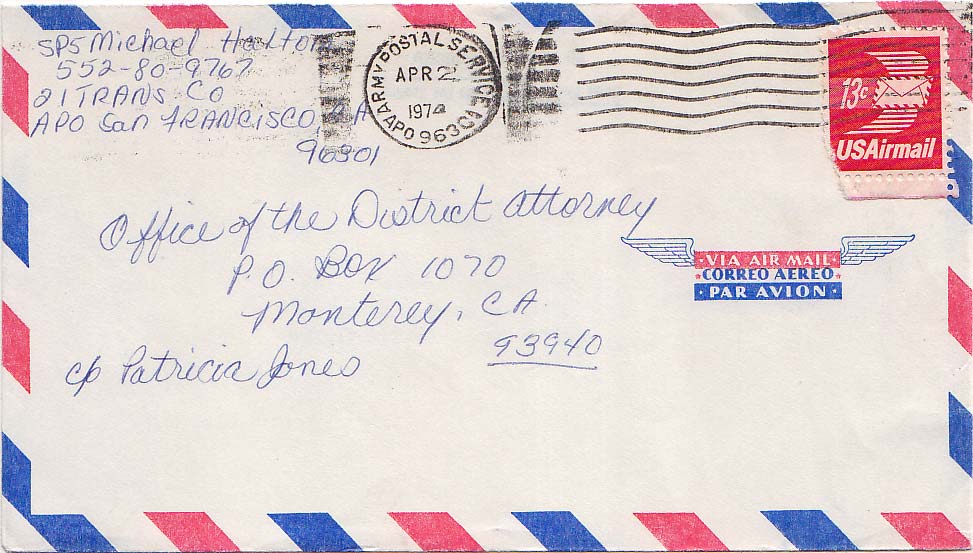 SP5 Michael Halton
552-80-9767
21 TRANS CO
APO San FRANCISCO, CA
96301
ARMY POSTAL SERVICE
APR 2
1974
APO 96301
13c
USAirmail
Office of the District Attorney
P.O. BOX 1070
Monterey, CA
93940
c/o Patricia Jones
VIA AIR MAIL
CORREO AEREO
PAR AVION